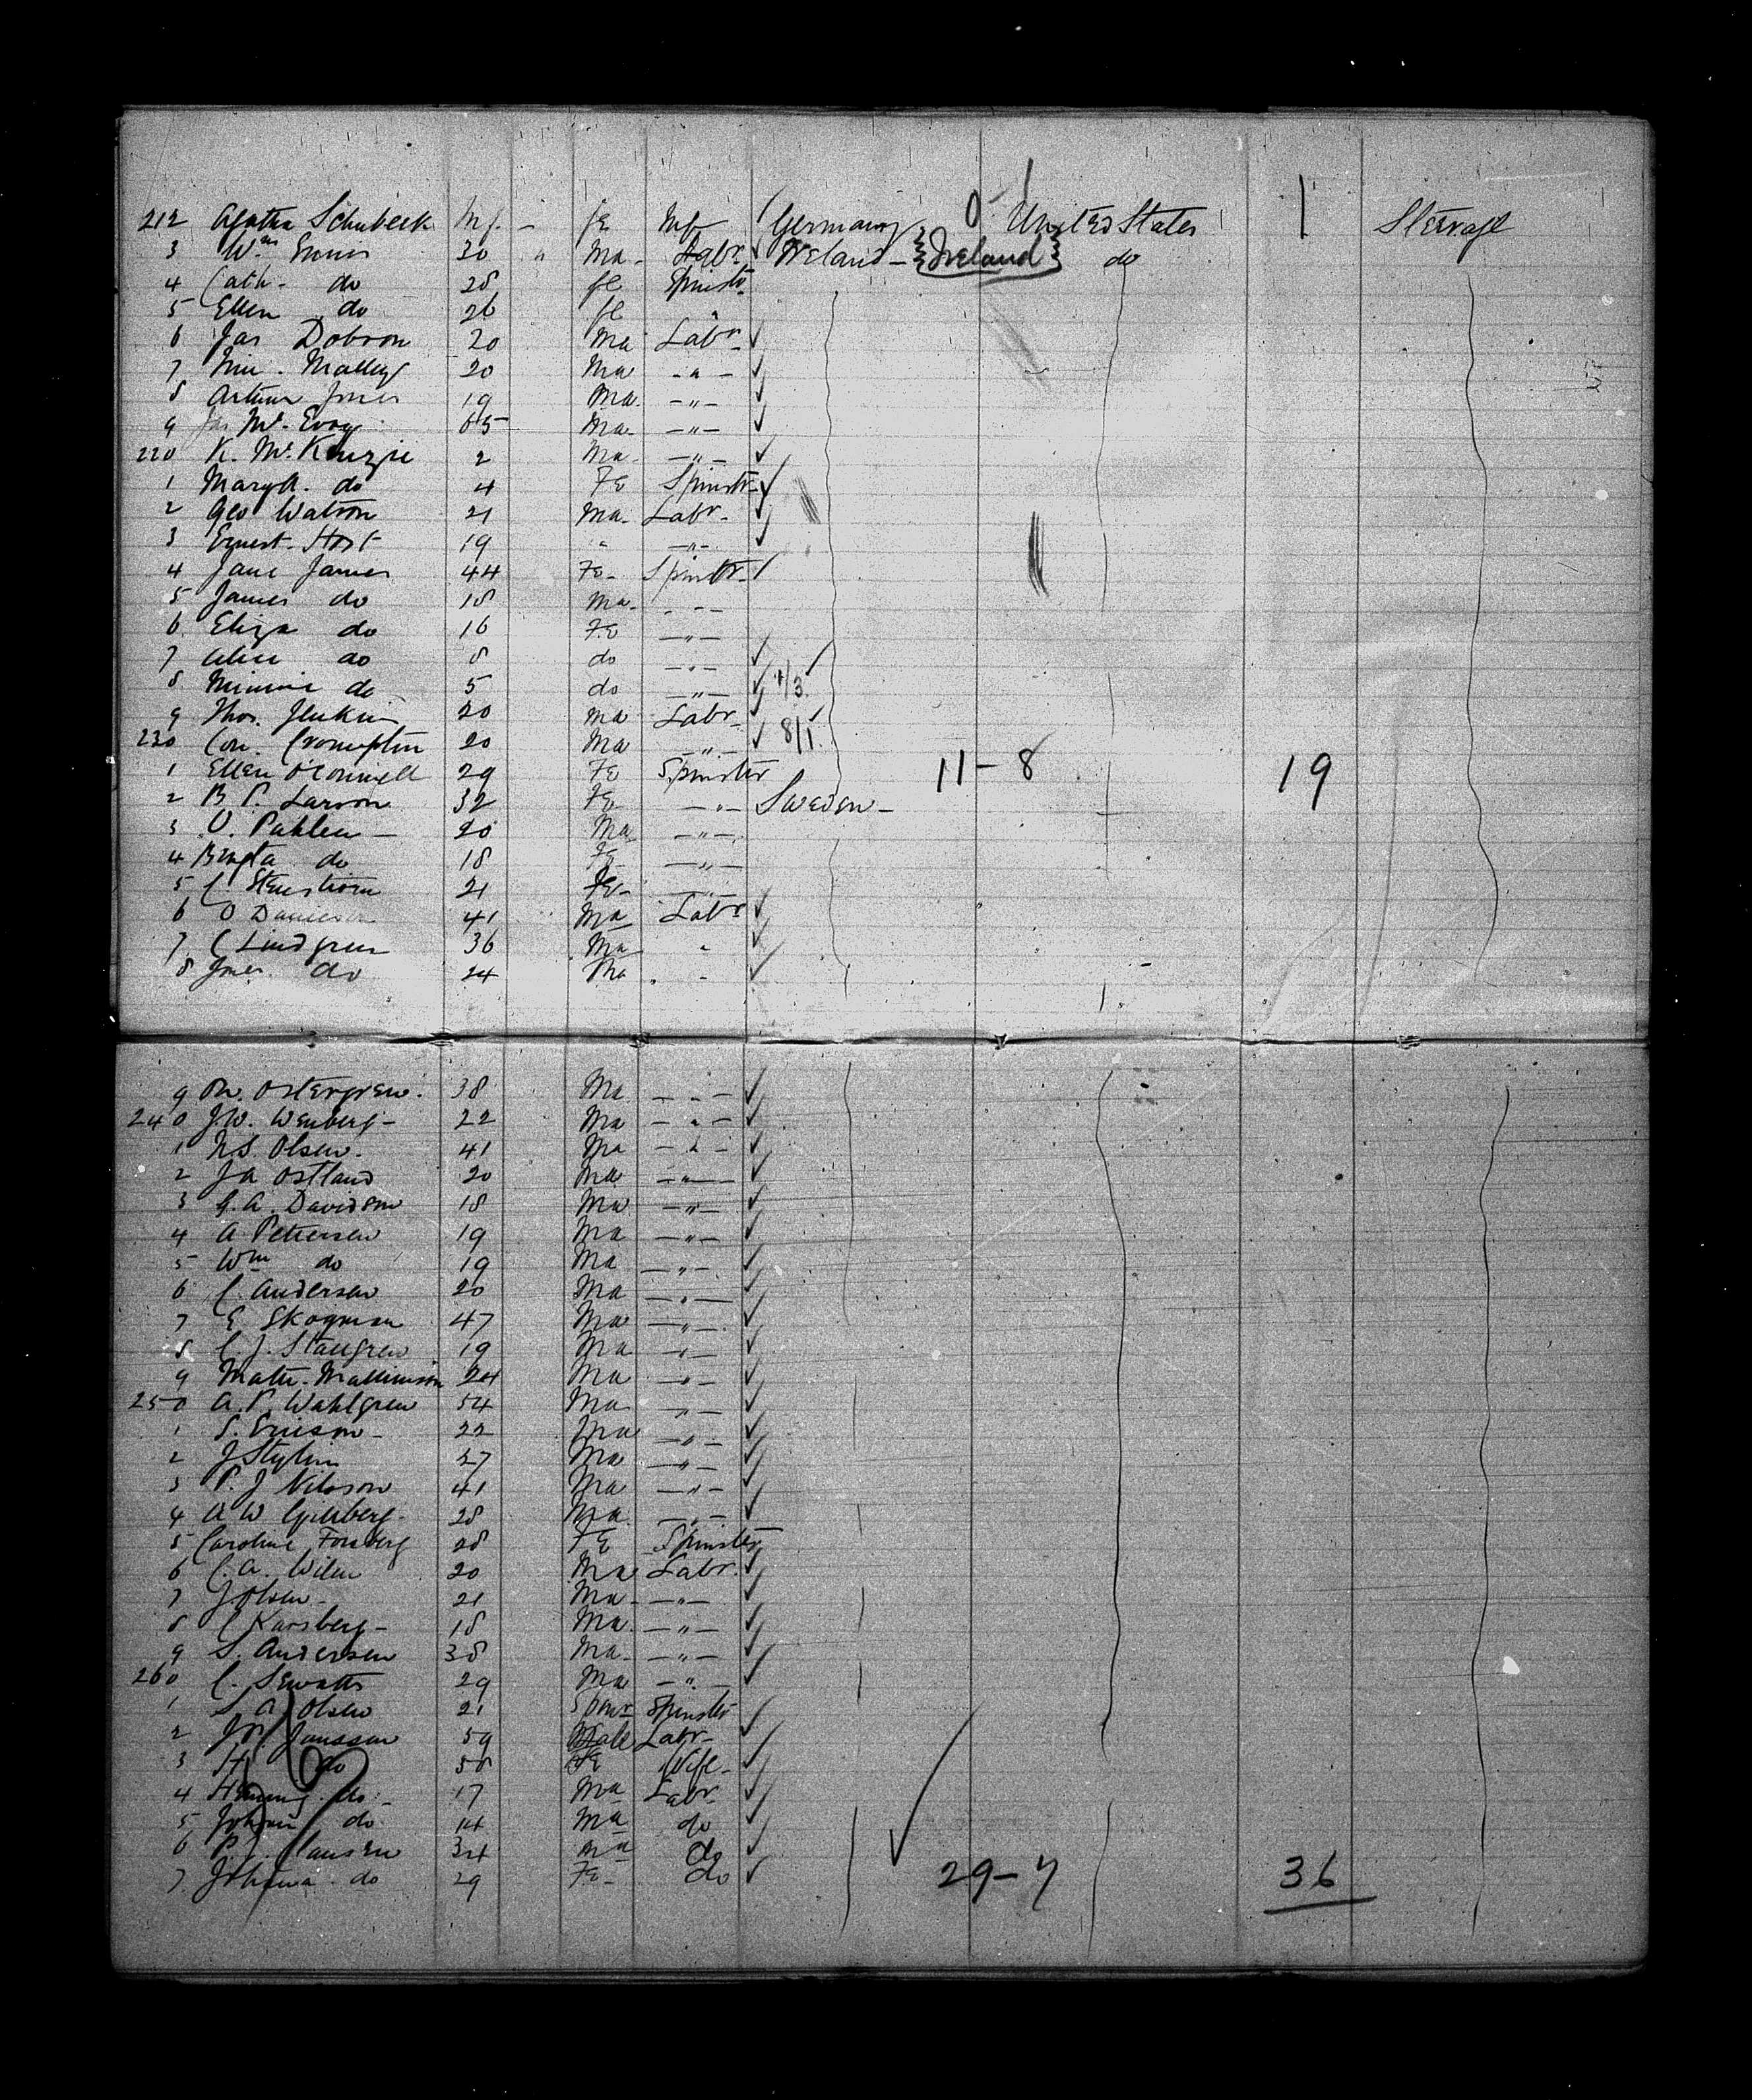 0 - 1
212 Agatha Schubeck Inf. - fe Inf Germany United States 1 Steerage
3 Wm Ennis 30 " Ma - Labr Ireland - {Ireland} do
4 Cath - do 28 fe Spinstr
5 Ellen do 26 fe "
6 Jas Dobson 20 Ma Labr
7 Malley 20 Ma - " -
8 Arthur Jones 19 Ma. - " -
9 Jas Mc Evoy 65 Ma - - " -
220 K. Mc Kenzie 2 Ma - - " -
1 Mary A. do 4 Fe Spinstr
2 Geo Watson 21 Ma - Labr -
3 Ernest Host 19 " - " -
4 Jane James 44 Fe - Spinstr -
5 James do 18 Ma - - " -
6 Eliza do 16 Fe - " -
7 Alice do 8 do - " -
8 Minnie do 5 do - " - 1/3
9 Thos. Jenkins 20 Ma Labr
230 Con. Crompton 20 Ma - " - 8/1
1 Ellen O'Connell 29 Fe Spinster 11 - 8 19
2 B P. Larson 32 Fe - " - Sweden -
3 O. Pahlen - 20 Ma - " -
4 Bengta do 18 Fe - " -
5 C. Stenstrom 21 Fe - - " -
6 O Danielson 41 Ma Labr
7 C Lindgren 36 Ma "
8 do 24 Ma "
9 Ostergren. 38 Ma - " -
240 J.W. Wenberg - 22 Ma - " -
1 N.S. Olsen. 41 Ma - " -
2 J A Ostland 20 Ma - " -
3 G. A. Davidson 18 Ma - " -
4 A Petersen 19 Ma - " -
5 Wm do 19 Ma - " -
6 C. Andersen 20 Ma - " -
7 E Skogman 47 Ma - " -
8 C. J. Stallgren 19 Ma - " -
9 Mallinison 24 Ma - " -
250 A. P. Wahlgren 54 Ma - " -
1 S. Ericson - 22 Ma - " -
2 J 27 Ma - " -
3 P. J Nilsson 41 Ma - " -
4 A W 28 Ma. - " -
5 Caroline Forsberg 28 Fe Spinster
6 C. A. Wilen 20 Ma Labr.
7 J Olsen - 21 Ma - - " -
8 C Karsberg - 18 Ma. - " -
9 S. Andersen 38 Ma - - " -
260 C. 29 Ma - " -
1 S A Olsen 21 Spinr Spinster
2 Jonsson 59 Male Labr -
3 H do 58 Fe Wife -
4 Henning do - 17 Ma Labr
5 do 14 Ma do
6 P. Hansen 34 Ma do
7 Johanna do 29 Fe - do 29 - 7 36